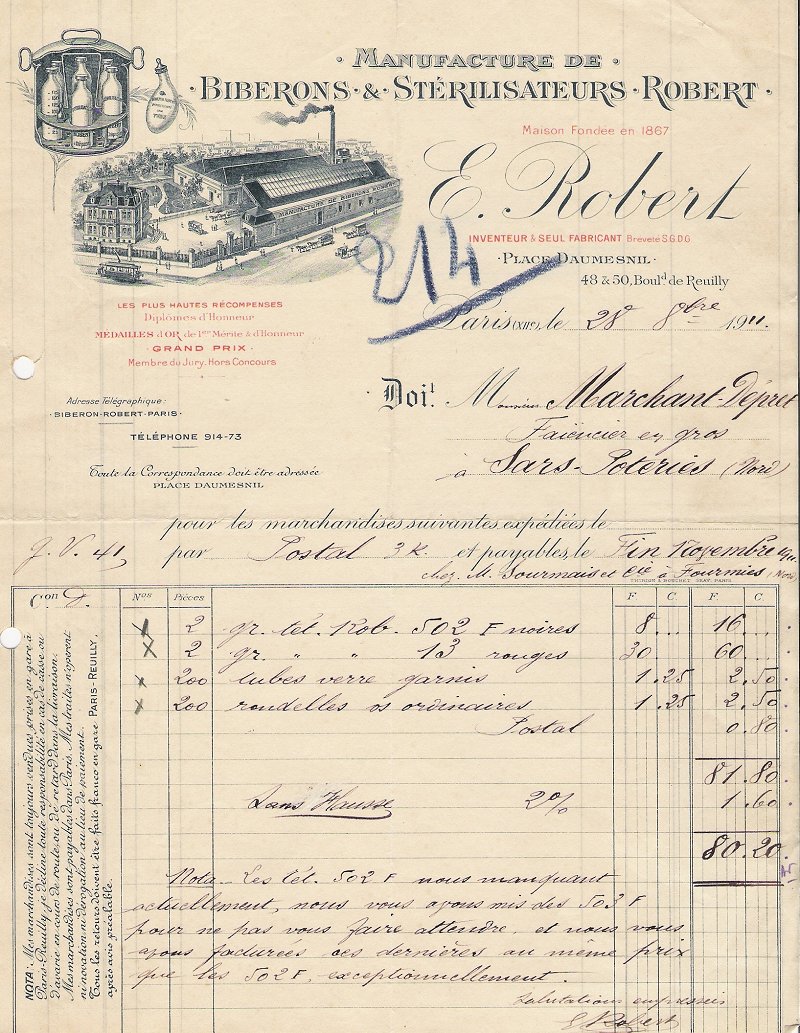 MANUFACTURE DE
BIBERONS & STÉRILISATEURS ROBERT
Maison Fondée en 1867
E. Robert
INVENTEUR & SEUL FABRICANT Breveté S.G.D.G
PLACE DAUMESNIL
48 & 50, Boul.d de Reuilly
214
Paris (XIIe), le 28 8bre 1911.
MANUFACTURE DE BIBERONS ROBERT
LES PLUS HAUTES RÉCOMPENSES
Diplômes d'Honneur
MÉDAILLES d'OR de 1er Mérite & d'Honneur
GRAND PRIX
Membre du Jury. Hors Concours
Adresse Télégraphique:
BIBERON-ROBERT-PARIS
TÉLÉPHONE 914-73
Toute la Correspondance doit être adressée
PLACE DAUMESNIL
Doit. Monsieur Marchant-Dépret
Faïencier en gros
à Sars-Poteries (Nord)
pour les marchandises suivantes expédiées le
J. V. 41 par Postal 3 K. et payables, le Fin Novembre 1911
chez M. Sourmais et Cie à Fourmies (Nord)
THIRION & BOUCHET GRAV. PARIS
Con Nos Pièces F C F C
2 gr. tét. Rob. 502 F noires 8 ... 16 ...
2 gr. " " 13 rouges 30 60 ...
200 tubes verre garnis 1.25 2.50
200 rondelles os ordinaires 1.25 2.50
Postal 0.80
81.80
Sans Hausse 2% 1.60
80.20
Nota. Les tét. 502 F nous manquant
actuellement, nous vous avons mis des 503 F
pour ne pas vous faire attendre, et nous vous
avons facturées ces dernières au même prix
que les 502 F, exceptionnellement.
Salutations empressées
E Robert
NOTA: Mes marchandises sont toujours vendues prises en gare à
Paris-Reuilly, je décline toute responsabilité en cas de casse ou
d'avarie en cours de route ou de retard dans la livraison.
Mes marchandises sont payables dans Paris. Mes traites n'opèrent
ni novation ni dérogation au lieu de paiement.
Tous les retours doivent être faits franco en gare PARIS-REUILLY,
après avis préalable.